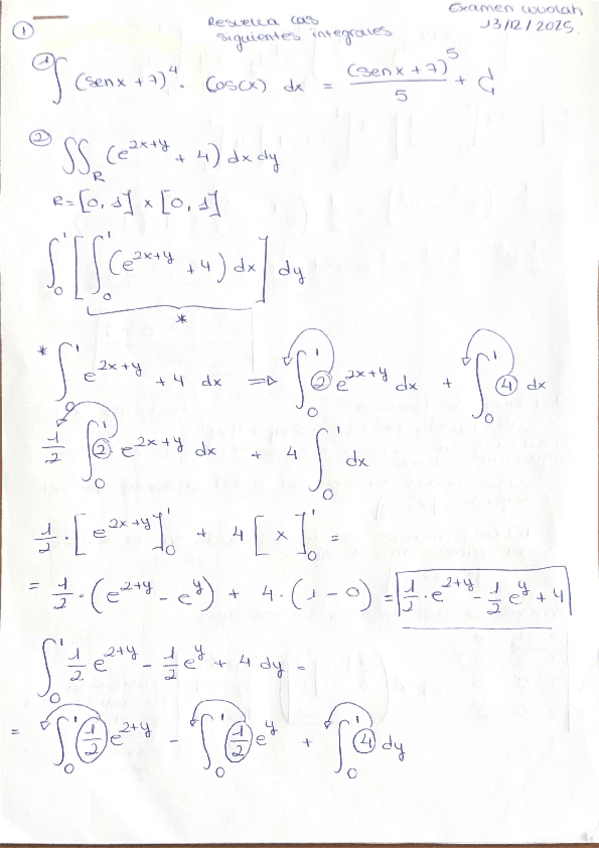 Examen wuolah
13/12/2025.
① Resuelva las
siguientes integrales
① ∫ (senx + 7)⁴ · cos(x) dx = (senx + 7)⁵/5 + C
② ∬_R (e^{2x+y} + 4) dx dy
R = [0, 1] x [0, 1]
∫₀¹ [∫₀¹ (e^{2x+y} + 4) dx] dy
*
* ∫₀¹ e^{2x+y} + 4 dx ⇒ ∫₀¹ ② e^{2x+y} dx + ∫₀¹ ④ dx
1/2 ∫₀¹ ② e^{2x+y} dx + 4 ∫₀¹ dx
1/2 · [e^{2x+y}]₀¹ + 4 [x]₀¹ =
= 1/2 · (e^{2+y} - e^y) + 4 · (1 - 0) = 1/2 · e^{2+y} - 1/2 e^y + 4
∫₀¹ 1/2 e^{2+y} - 1/2 e^y + 4 dy =
= ∫₀¹ (1/2) e^{2+y} - ∫₀¹ (1/2) e^y + ∫₀¹ ④ dy